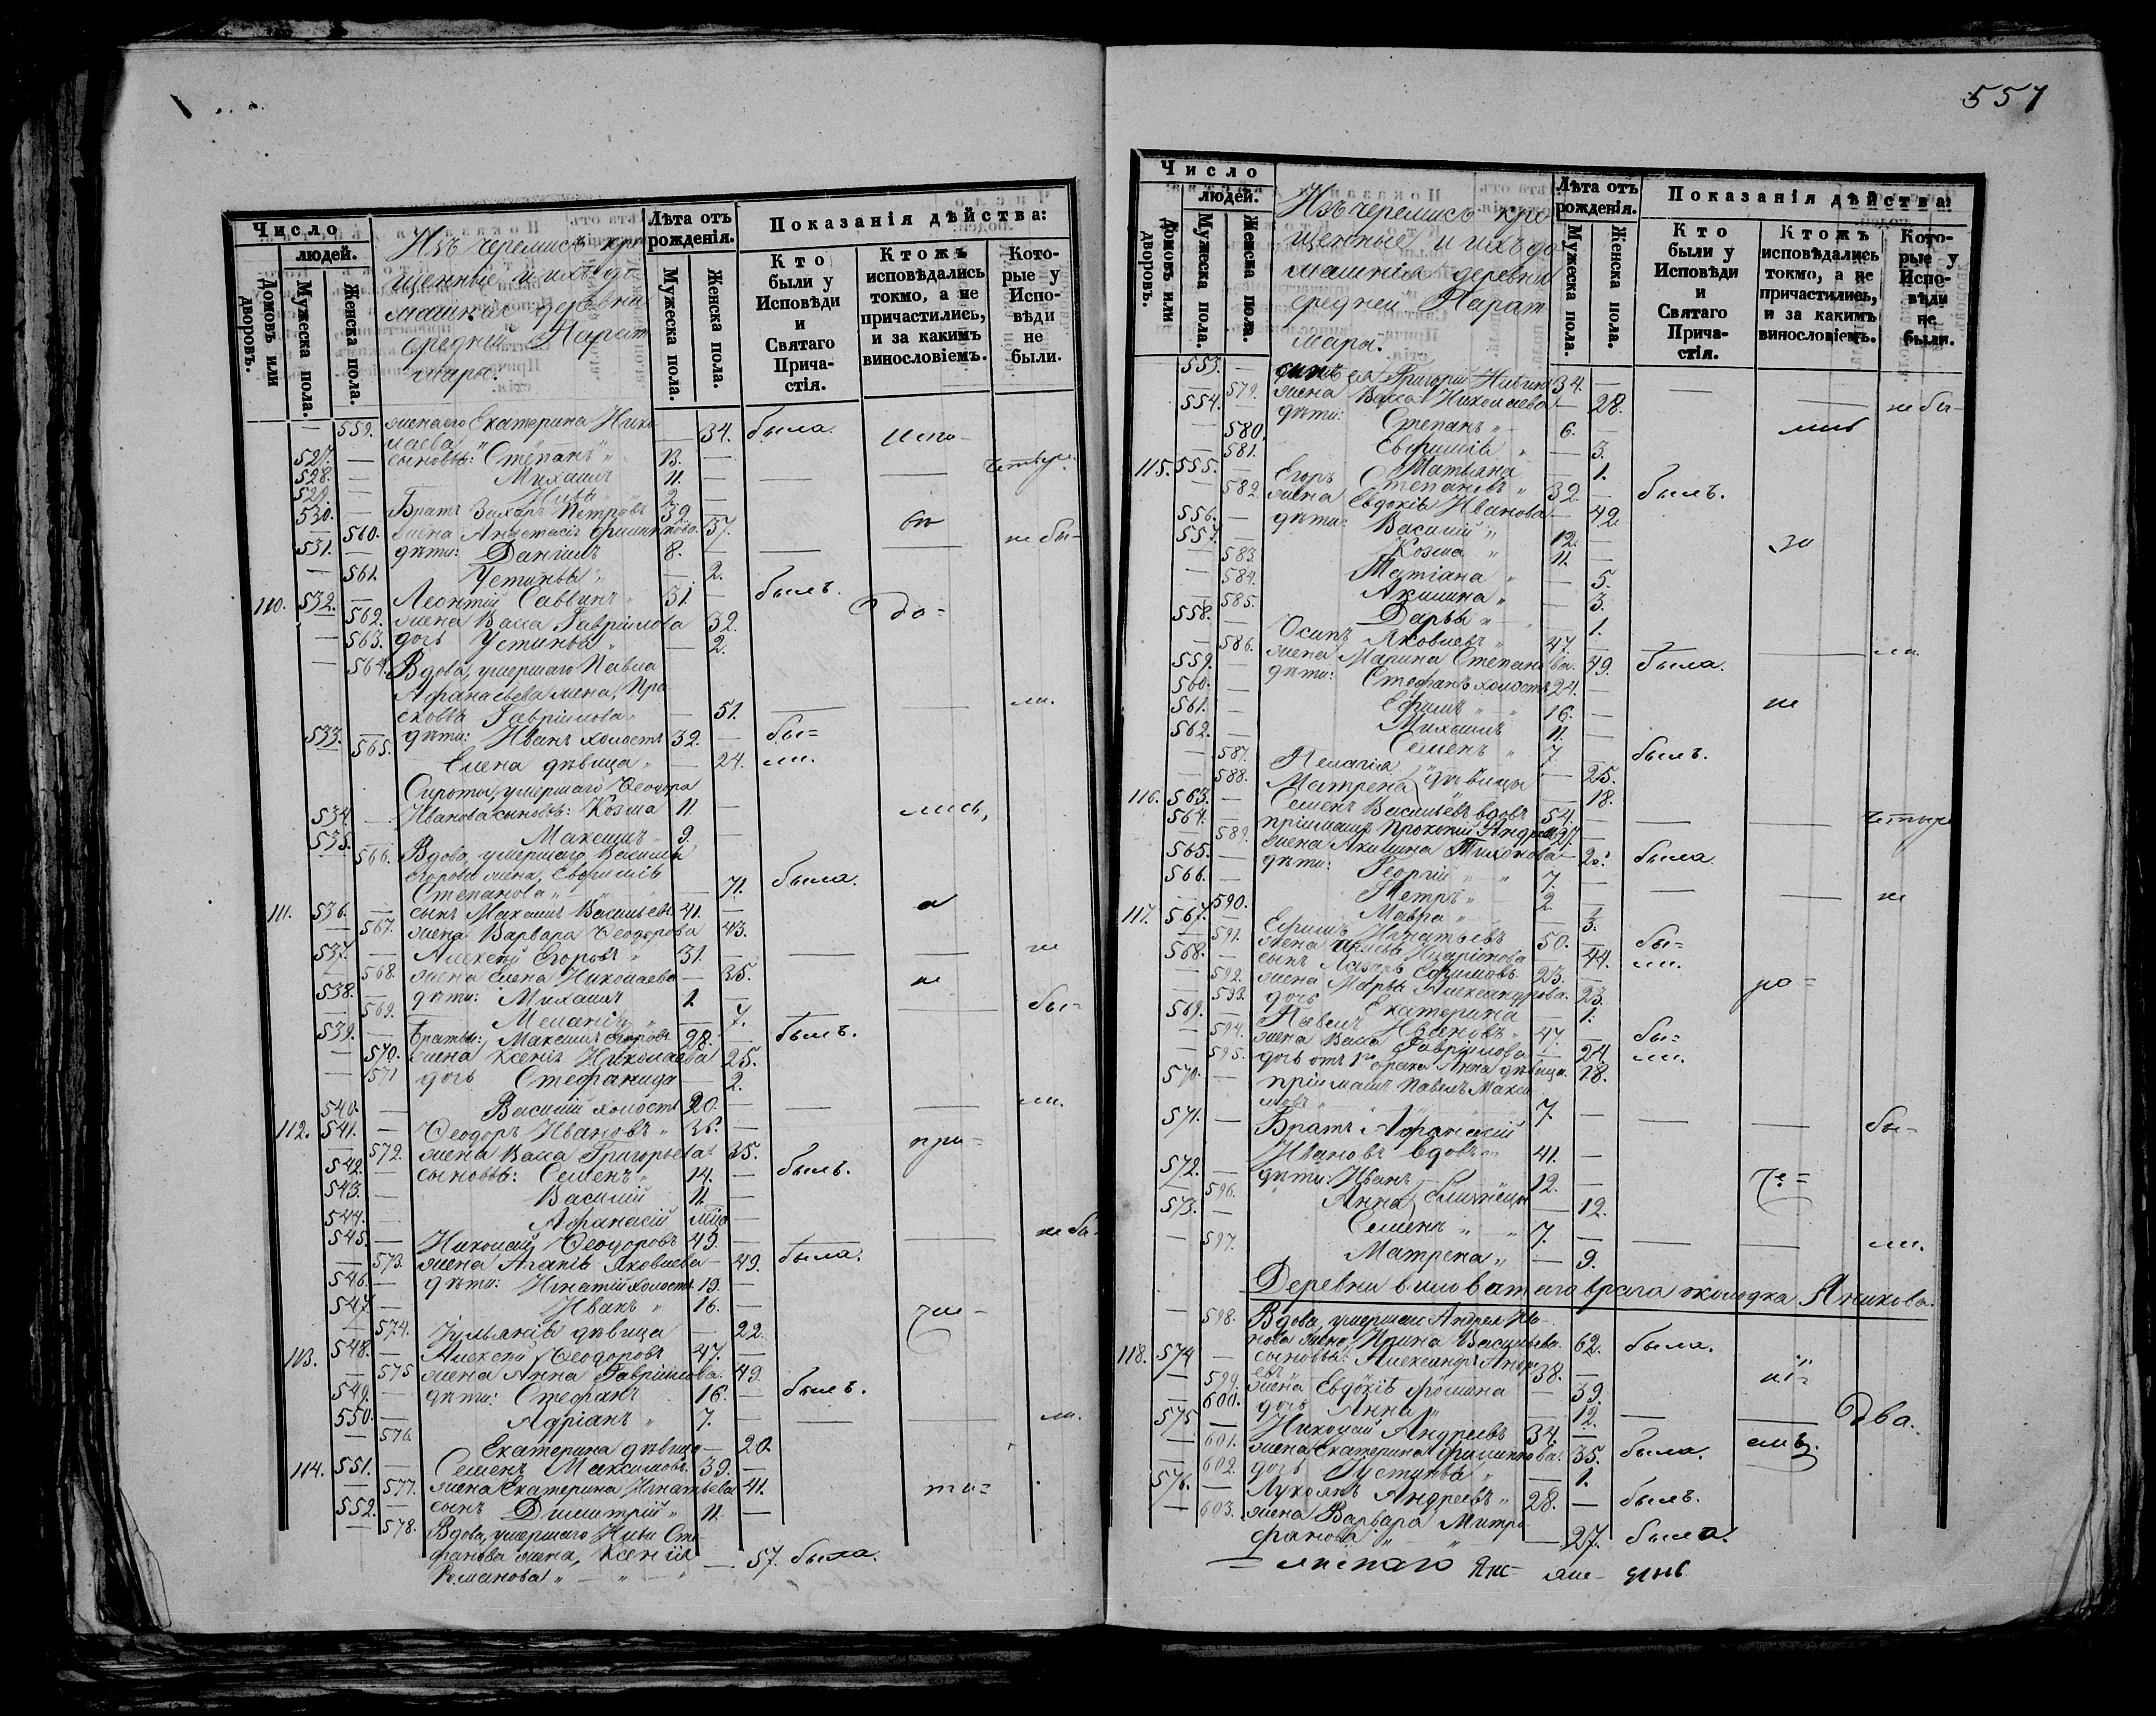 Число
людей.
Домовъ или дворовъ.
Мужеска пола.
Женска пола.
Изъ черемисъ кре
щенные и ихъ до
машніе деревни
средней Парат
мары.
Лѣта отъ рожденія.
Мужеска пола.
Женска пола.
Показанія дѣйства:
Кто были у Исповѣди и Святаго Причастія.
Ктожъ исповѣдались токмо, а не причастились, и за какимъ винословіемъ.
Которые у Исповѣди не были.
559. жена его Екатерина Нико
лаева " 34. была. испо-
527. — сыновья: Степанъ " 13. —
528. — Михаилъ 11. — четыре.
529. — 2 —
530. — Братъ Захаръ Петровъ 39 —
560. жена Анастасія 37. не бы-
531. — дѣти: Даніилъ 8. —
561. Устинья " — 2.
110. 532. — Леонтій Саввинъ " 31. — былъ.
562. жена Васса Гаврилова 32. до=
563. дочь Устинья " — 2.
564. Вдова, умершаго Павла
Афанасьева жена, Пра
сковья Гаврилова " — 51. ли.
533. — дѣти: Иванъ холостъ 32. — бы=
565. Елена дѣвица " — 24. ли.
Сироты, умершаго Ѳеодора
534. — Иванова сыновья: Козма 11 — лись,
535. — Максимъ " 9. —
566. Вдова, умершаго Василья
Егорова жена, Евфимія
Степанова " — 71. была.
111. 536. — сынъ Максимъ Васильевъ 41. — а
567. жена Варвара Ѳеодорова 43.
537. — Алексѣй Егоровъ " 31. — не
568. жена Елена Николаева — 35. не
538. — дѣти: Михаилъ 1. —
569. Меланія " — 7. бы=
539. — Братья: Максимъ Егоровъ 28. — былъ.
570. жена Ксенія Николаева 25.
571 дочь Стефанида — 2.
540. — Василій холостъ 20. — ли.
112. 541. — Ѳеодоръ Ивановъ " 36. —
572. жена Васса Григорьева 35. при=
542. — сыновья: Семенъ " 14. — былъ.
543. — Василій 11. —
544. — Афанасій —
545. — Николай Ѳеодоровъ 49. — не бы
573. жена Агапія Яковлева — 49. была.
546. — дѣти: Игнатій холостъ 19. —
547. — Иванъ " 16. —
574. Іульянія дѣвица — 22.
113. 548. — Алексѣй Ѳеодоровъ 47. —
575 жена Анна Гаврилова. 49.
549. — дѣти: Стефанъ 16. — былъ.
550. — Адріанъ " 7. — ли.
576. Екатерина дѣвица — 20.
114. 551. — Семенъ Максимовъ. 39. —
577. жена Екатерина Игнатьева 41. ти=
552. — сынъ Димитрій " 11. —
578. Вдова, умершаго Ильи Сте
фанова жена, Ксенія
Романова " — 57. была.
557
Число
людей.
Домовъ или дворовъ.
Мужеска пола.
Женска пола.
Изъ черемисъ кре
щенные и ихъ до
машніе деревни
средней Парат
мары.
Лѣта отъ рожденія.
Мужеска пола.
Женска пола.
Показанія дѣйства:
Кто были у Исповѣди и Святаго Причастія.
Ктожъ исповѣдались токмо, а не причастились, и за какимъ винословіемъ.
Которые у Исповѣди не были.
553. — сынъ ея Григорій Ильинъ 34. —
579. жена Васса Николаева — 28. не бы-
554. — дѣти: Степанъ " 6. —
580. Евфимія " — 3.
581. Татьяна — 1.
115. 555. — Егоръ Степановъ " 32. — былъ.
582. жена Евдокія Иванова — 42.
556. — дѣти: Василій " 12. —
557. — Козма " 11. — за
583. Татіана " — 5.
584. Акилина " — 3.
585. Дарья " — 1.
558. — Осипъ Яковлевъ " 47. —
586. жена Марина Степанова. 49. была. ли.
559. — дѣти: Стефанъ холостъ 24. —
560. — Ефимъ " 16. — не
561. — Михаилъ 11. —
562. — Семенъ " 7. — былъ.
587. Пелагія — 25.
588. Матрена дѣвицы — 18.
116. 563. — Семенъ Васильевъ вдовъ 54. — четыре
564. — пріимышъ Прокопій Андреевъ 27. —
589. жена Акилина Тихонова — была
565. — дѣти: Георгій " 7. —
566. — Петръ " 2. — не
590. Мавра " — 3.
117. 567. — Ефимъ Игнатьевъ 50. — бы=
591. жена Иларіонова — 44. ли.
568. — сынъ Лазарь Ефимовъ 23. —
592. жена Марья Александрова. 23. ро=
593. дочь Екатерина — 1.
569. — Павелъ Ивановъ " 47. — бы=
594. жена Васса Гаврилова — 24. ли.
595. дочь отъ 1го брака Анна дѣвица. 18.
570. — пріимышъ Павелъ Макси
мовъ " 7. —
571. — Братъ Афанасій бы-
Ивановъ вдовъ " 41. —
572. — дѣти: Иванъ 12. —
596. Анна близнецы — 12.
573. — Семенъ " 7. —
597. Матрена " — 9. ли.
Деревни виловатаго врага околодка Яникова.
598. Вдова, умершаго Андрея Ива
нова жена, Ирина Васильева. 62. была.
118. 574 — сыновья: Александръ Андре
евъ 38. —
599. жена Евдокія Фомина — 39.
600. дочь Анна " — 12. Два.
575 — Николай Андреевъ 34. —
601. жена Екатерина Филиппова. 35. была. емъ.
602. дочь Устинья " — 1.
576. — Лукоянъ Андреевъ " 28. — былъ.
603. жена Варвара Митро
фанова " — 27. была.